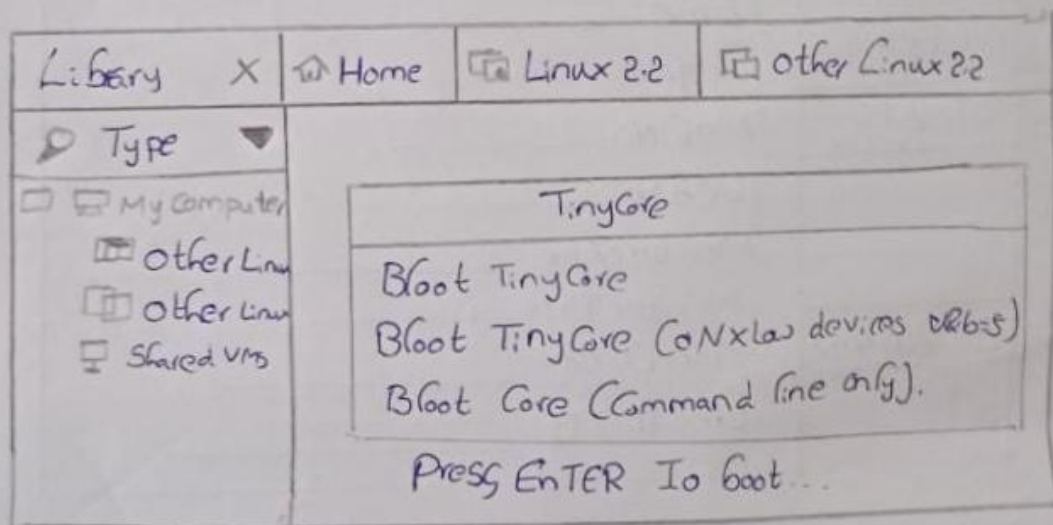 Library X Home Linux 2.2 Other Linux 22
Type
My Computer
Other Linu
Other Linu
Shared VMs
TinyCore
Bloot TinyCore
Bloot TinyCore ( devices
Bloot Core (Command line only).
Press EnTER Io boot...